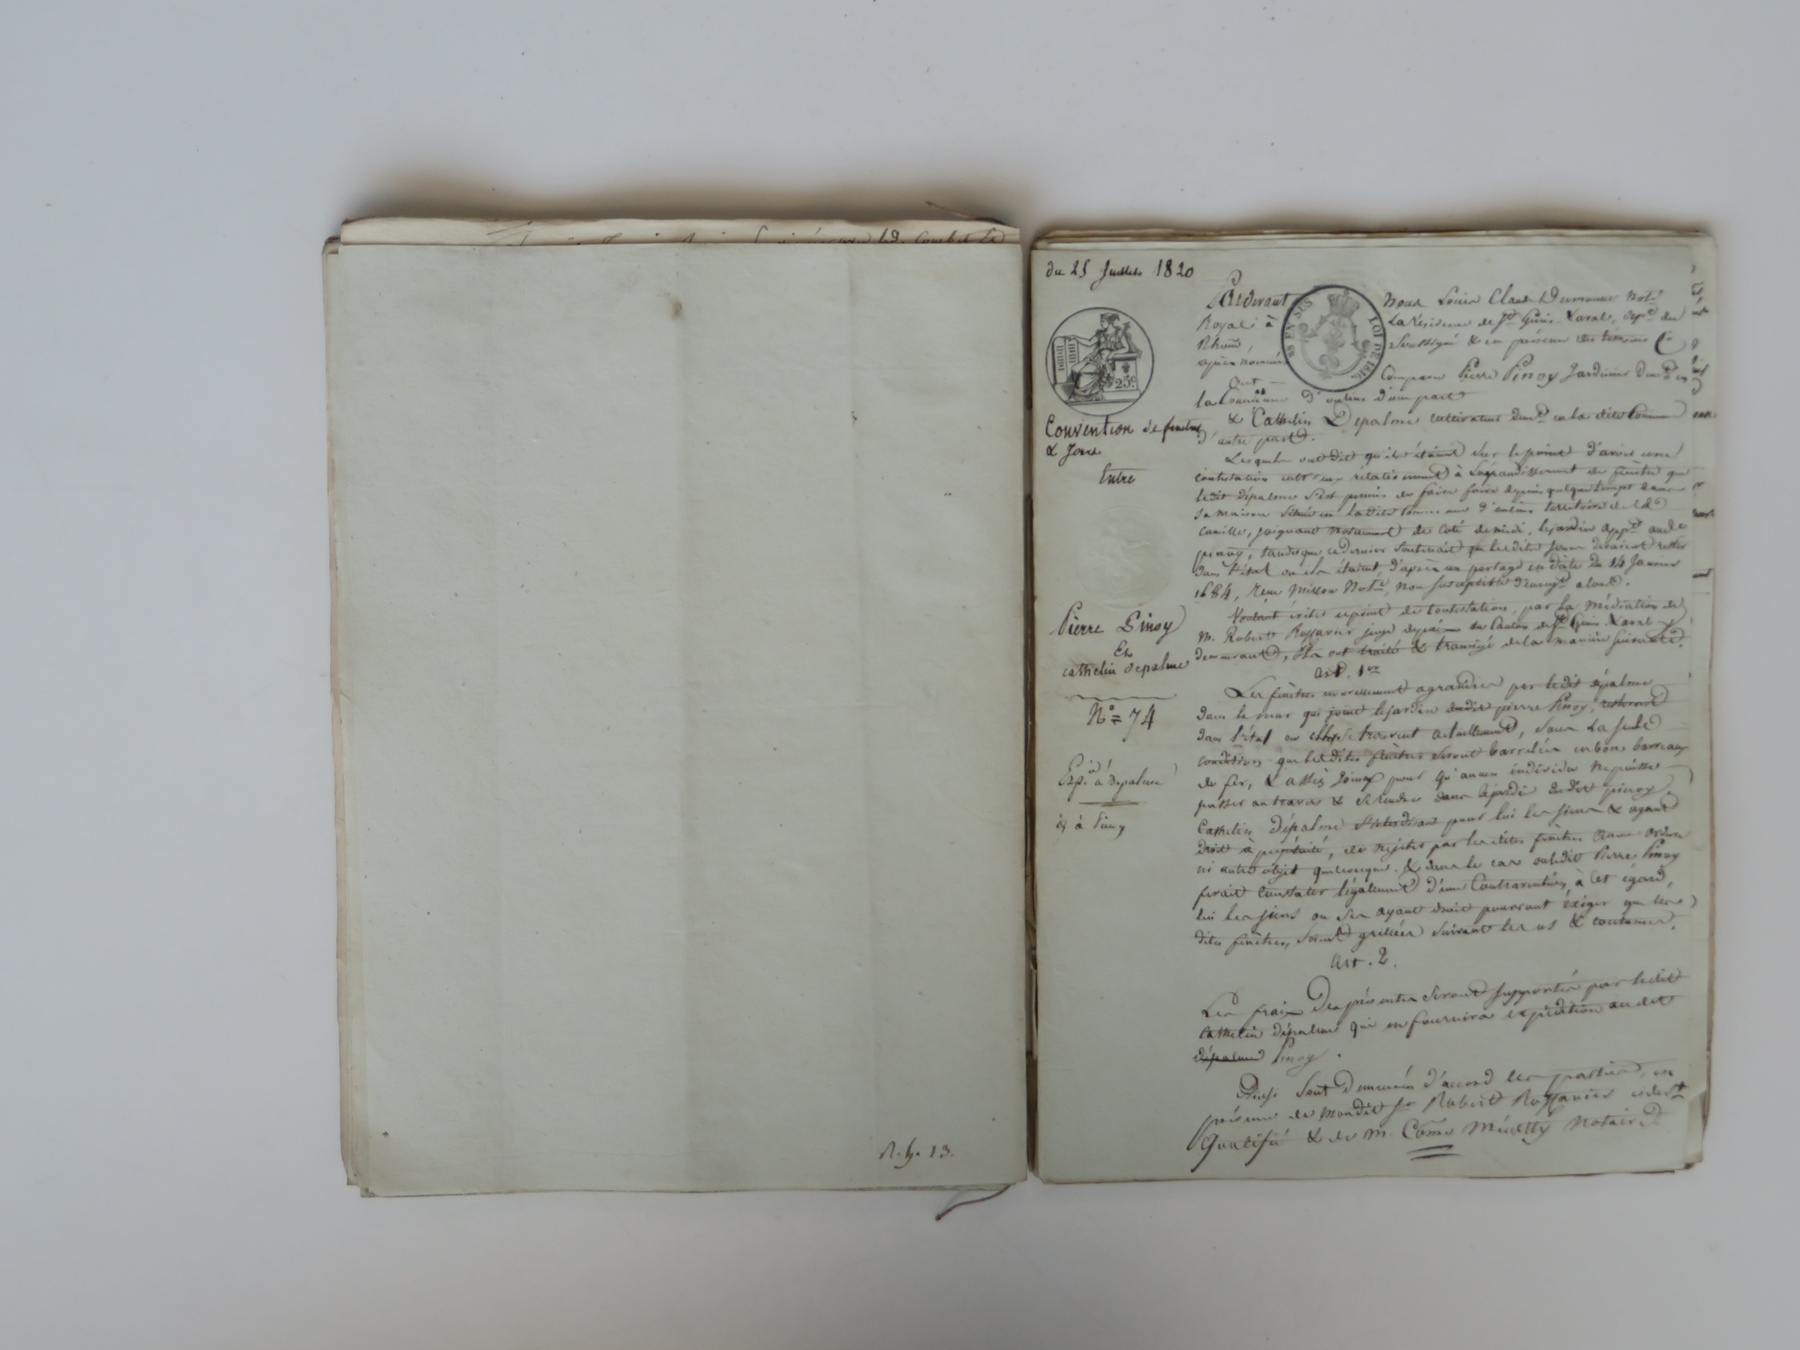 R. h. 13.
du 25 Juillet 1820
25c
EN SUS
LOI DE 1816
Pardevant Nous Louis Claude Dumoune Notre
Royal à La Résidence de St Genis Laval, depnt du
Rhône Soussigné & en présence des témoins
après nommés
Ont Comparu Pierre Pinoy Jardinier demnt en
la Commune d'oulins d'une part
& Cathelin Depalme cultivateur demnt en la dite Commune
d'autre part.
Convention de fenetres
& Jours
Entre
Pierre Pinoy
Et
cathelin depalme
N° = 74
Exp. à depalme
id à Pinoy
Lesquels ont dit qu'ils étaient Sur le point d'avoir une
contestation entr'eux relativement à l'agrandissement de fenêtres que
ledit dépalme s'est permis de faire faire depuis quelque temps dans
sa maison Située en la dite commune d'oulins territoire de la
camille, joignant notamment de coté de midi, le jardin appnt audt
pinoy, tandis que ce dernier Soutenait que les dites devaient rester
dans l'état où elles étaient, d'après un partage en date du 14 Janvier
1684, Reçu Notre, non susceptible d'enregt alors.
Voulant éviter ce point de contestation, par la médiation de
M. Robert juge de paix du Canton de St Genis Laval y
demeurant, Ils ont traité & transigé de la manière suivante.
art. 1er
Les fenêtres nouvellement agrandies par ledit dépalme
dans le mur qui joint le jardin dudit pierre Pinoy, resteront
dans l'état où elles se trouvent actuellement, sous La seule
condition que lesdites fenêtres seront barrelées en bons barreaux
de fer, & assez joints pour qu'aucun individu ne puisse
passer au travers & se rendre dans le jardin dudit pinoy.
Cathelin dépalme s'interdisant pour lui les siens & ayant
droit à perpétuité, de rejeter par lesdites fenêtres aucune ordure
ni autre objet quelconque. & dans le cas où ledit Pierre Pinoy
ferait constater légalement d'une Contravention, à cet égard,
lui les siens ou ses ayant droit pourront exiger que les
dites fenêtres, soient grillées suivant les us & coutumes.
Art. 2.
Les frais Des présentes seront supportés par ledit
cathelin dépalme qui en fournira expédition audit
dépalme Pinoy.
Ainsi Sont Demeurés d'accord les parties, en
présence de Mondit Sr Robert
Qualifié & de M. Côme Notaire